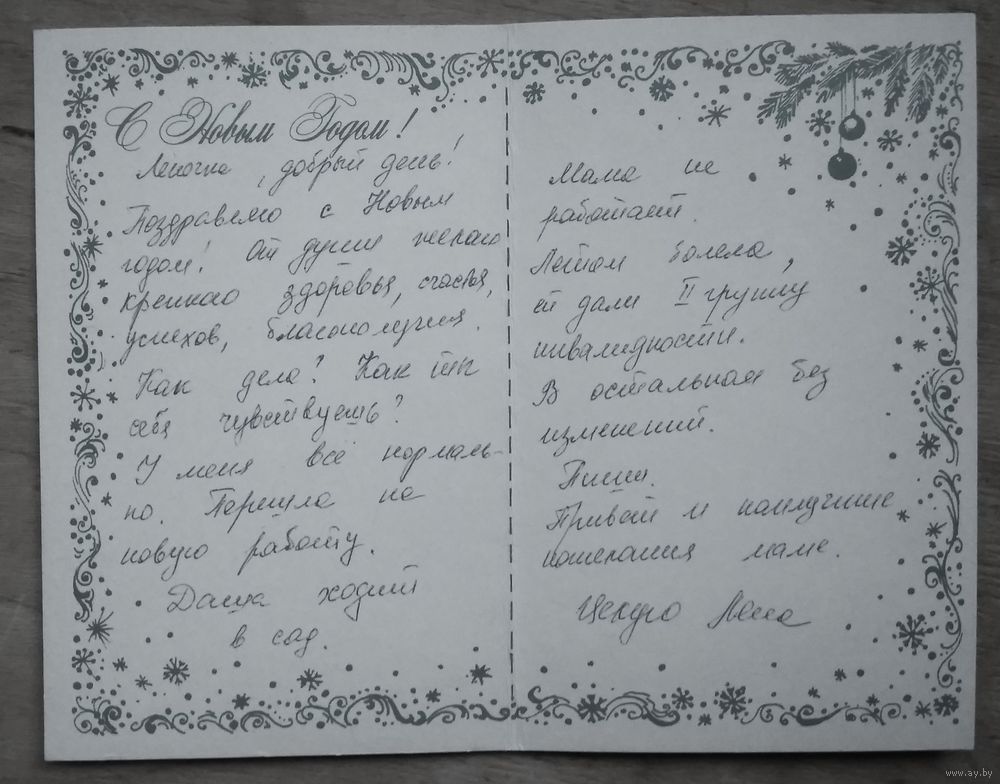 С Новым Годом!
Леночка, добрый день!
Поздравляю с Новым
годом! От души желаю
крепкого здоровья, счастья,
успехов, благополучия.
Как дела? Как ты
себя чувствуешь?
У меня всё нормаль-
но. Перешла на
новую работу.
Даша ходит
в сад.
Мама не
работает.
Летом болела,
ей дали II группу
инвалидности.
В остальном без
изменений.
Пиши.
Привет и наилучшие
пожелания маме.
Целую Лена
www.ay.by